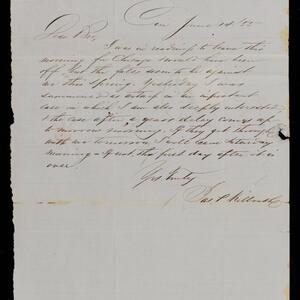 June 14/55
Dear Bro,
I was in readiness to leave this
morning for Chicago & would have been
off. But the fates seem to be against
me this Spring. Yesterday I was
summoned in an important
case in which I am also deeply interested
& the case after a years delay comes up
to morrow morning. If they get through
with me tomorrow, I will leave Saturday
morning & if not, the first day after it is
over.
Yrs. Truly
Jas. P.